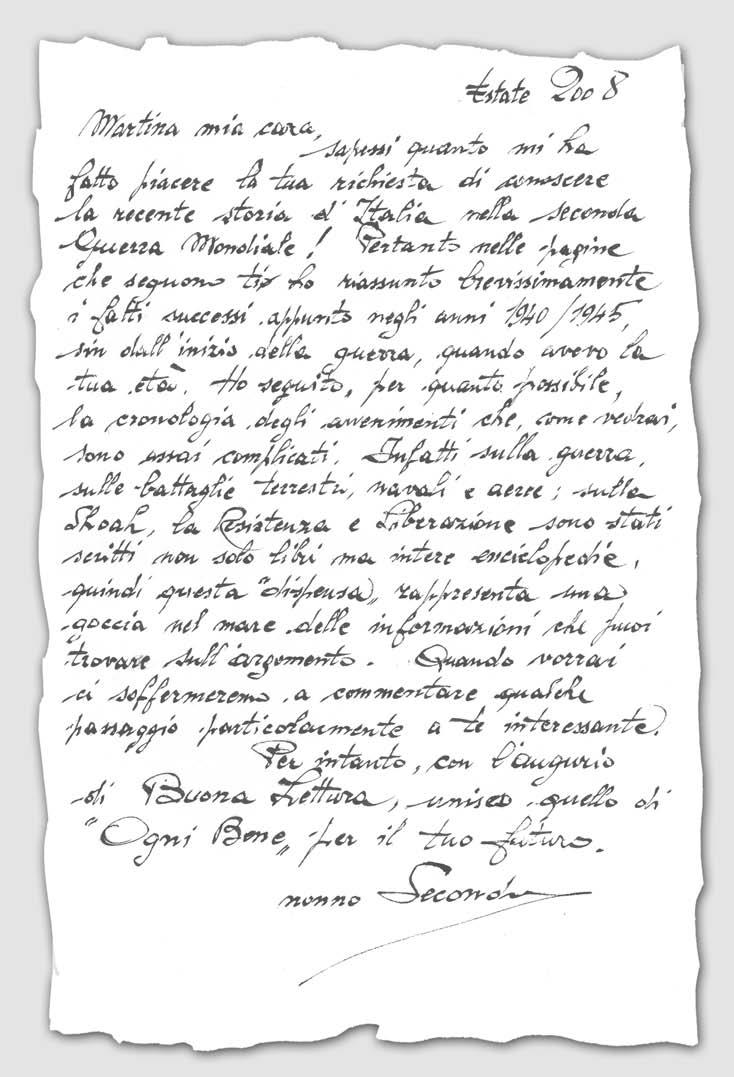 Estate 2008
Martina mia cara,
sapessi quanto mi ha
fatto piacere la tua richiesta di conoscere
la recente storia d'Italia nella seconda
Guerra Mondiale! Pertanto nelle pagine
che seguono ti ho riassunto brevissimamente
i fatti successi appunto negli anni 1940/1945,
sin dall'inizio della guerra, quando avevo la
tua età. Ho seguito, per quanto possibile,
la cronologia degli avvenimenti che, come vedrai,
sono assai complicati. Infatti sulla guerra,
sulle battaglie terrestri, navali e aeree; sulla
Shoah, la Resistenza e Liberazione sono stati
scritti non solo libri ma intere enciclopedie,
quindi questa "dispensa" rappresenta una
"goccia nel mare delle informazioni che puoi
trovare sull'argomento. Quando vorrai
ci soffermeremo a commentare qualche
passaggio particolarmente a te interessante.
Per intanto, con l'augurio
di Buona Lettura, unisco quello di
"Ogni Bene" per il tuo futuro.
nonno Secondo